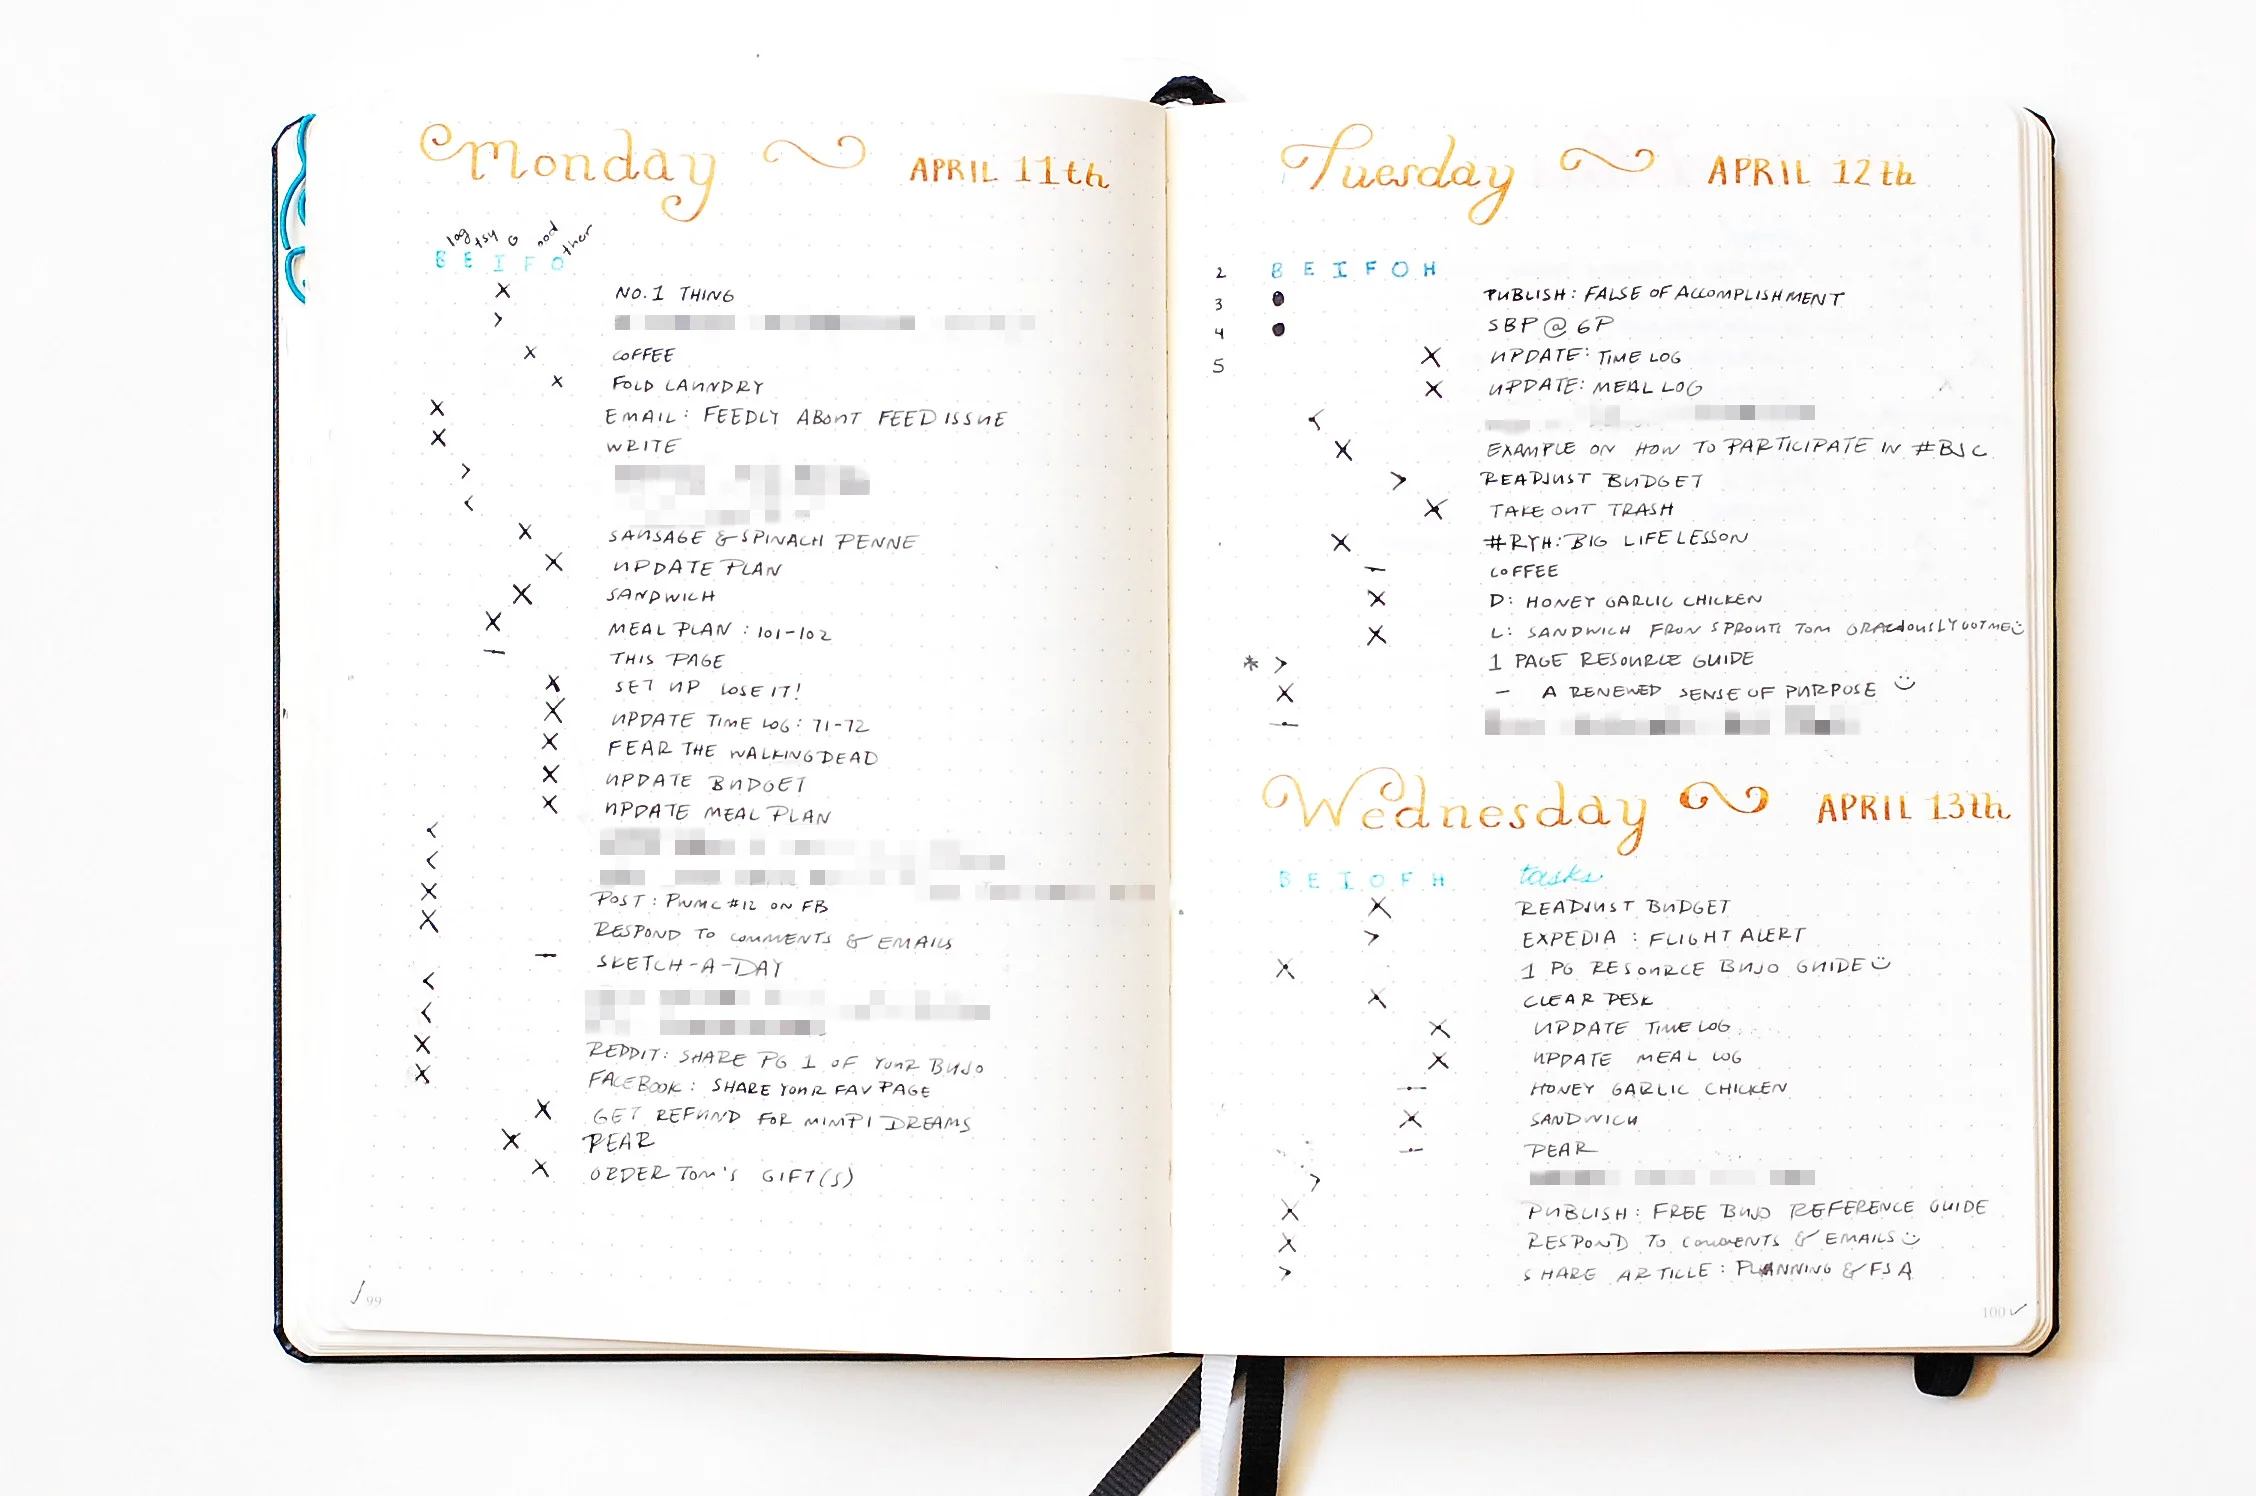 Monday APRIL 11th
log tsy G ood ther
B E I F O
X NO. 1 THING
>
X COFFEE
X FOLD LAUNDRY
X EMAIL: FEEDLY ABOUT FEED ISSUE
X WRITE
>
<
X SAUSAGE & SPINACH PENNE
X UPDATE PLAN
X SANDWICH
X MEAL PLAN : 101-102
— THIS PAGE
X SET UP LOSE IT!
X UPDATE TIME LOG: 71-72
X FEAR THE WALKING DEAD
X UPDATE BUDGET
X UPDATE MEAL PLAN
<
<
X POST: PWMC #12 ON FB
X RESPOND TO COMMENTS & EMAILS
— SKETCH-A-DAY
<
<
X REDDIT: SHARE PG 1 OF YOUR BUJO
X FACEBOOK: SHARE YOUR FAV PAGE
X GET REFUND FOR MIMPI DREAMS
X PEAR
X ORDER TOM'S GIFT(S)
✓ 99
Tuesday APRIL 12th
2 B E I F O H
3 • PUBLISH: FALSE OF ACCOMPLISHMENT
4 • SBP @ 6P
5 X UPDATE: TIME LOG
X UPDATE: MEAL LOG
<
X EXAMPLE ON HOW TO PARTICIPATE IN #BJC
> READJUST BUDGET
X TAKE OUT TRASH
X #RYH: BIG LIFE LESSON
— COFFEE
X D: HONEY GARLIC CHICKEN
X L: SANDWICH FROM SPROUTS TOM GRACIOUSLY GOT ME ☺
* > 1 PAGE RESOURCE GUIDE
X – A RENEWED SENSE OF PURPOSE ☺
—
Wednesday APRIL 13th
B E I O F H tasks
X READJUST BUDGET
> EXPEDIA : FLIGHT ALERT
X 1 PG RESOURCE BUJO GUIDE ☺
X CLEAR DESK
X UPDATE TIME LOG
X UPDATE MEAL LOG
— HONEY GARLIC CHICKEN
X SANDWICH
— PEAR
>
X PUBLISH: FREE BUJO REFERENCE GUIDE
X RESPOND TO COMMENTS & EMAILS ☺
> SHARE ARTICLE: PLANNING & FSA
100 ✓